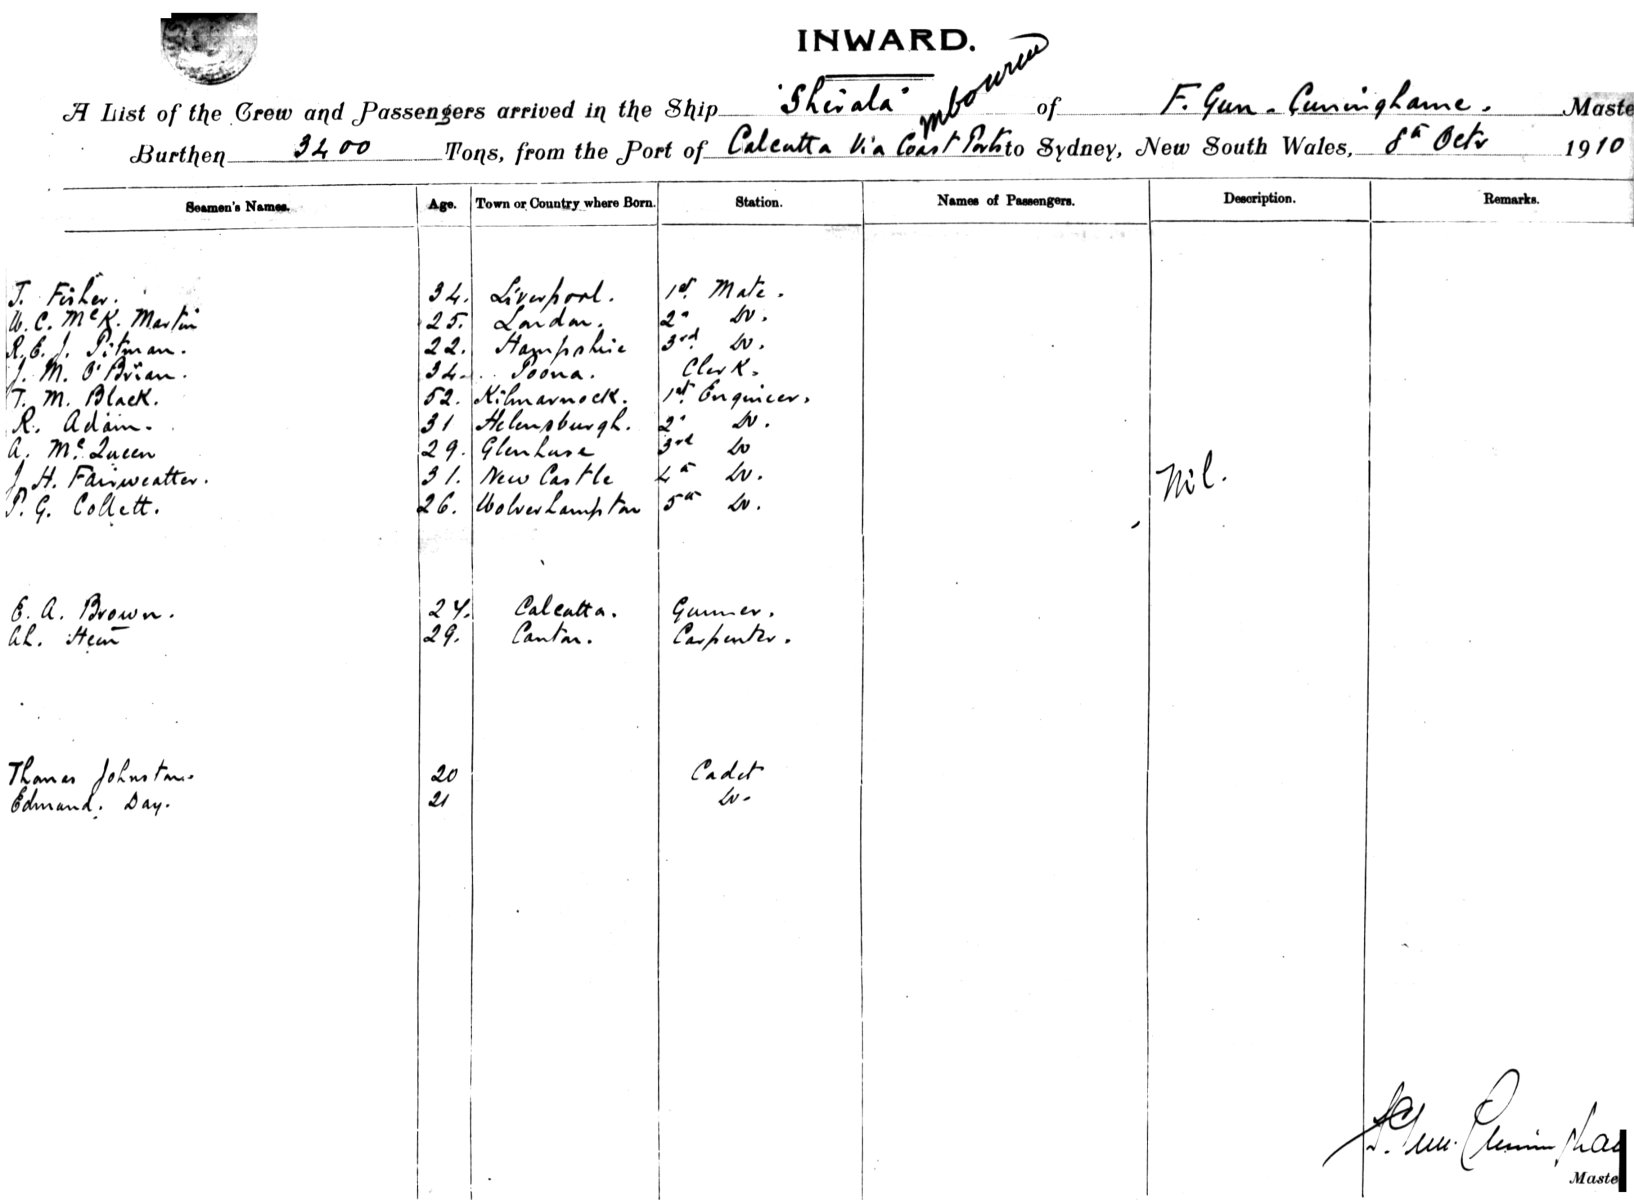 INWARD.
A List of the Crew and Passengers arrived in the Ship "Shirala" of F. Gun-Cuninghame. Maste
Mbourne
Burthen 3400 Tons, from the Port of Calcutta Via Coast Ports to Sydney, New South Wales, 8th Octr 1910
Seamen's Names. Age. Town or Country where Born. Station. Names of Passengers. Description. Remarks.
J. Fisher. 34. Liverpool. 1st. Mate.
W. C. McK. Martin 25. London. 2" Do.
R. E. J. Pitman. 22. Hampshire 3rd. Do.
J. M. O'Brian. 34. Poona. Clerk.
T. M. Black. 52. Kilmarnock. 1st. Engineer.
R. Adam. 31 Helensburgh. 2" Do.
A. McQueen 29. Glenluse 3rd Do
J. H. Fairweatter. 31. New Castle 4th Do.
P. G. Collett. 26. Wolverhampton 5th Do.
Nil.
E. A. Brown. 24. Calcutta. Gunner.
Ah. Hem 29. Canton. Carpenter.
Thomas Johnston. 20 Cadet
Edmund. Day. 21 Do.
F. Gun. Cuningha
Maste